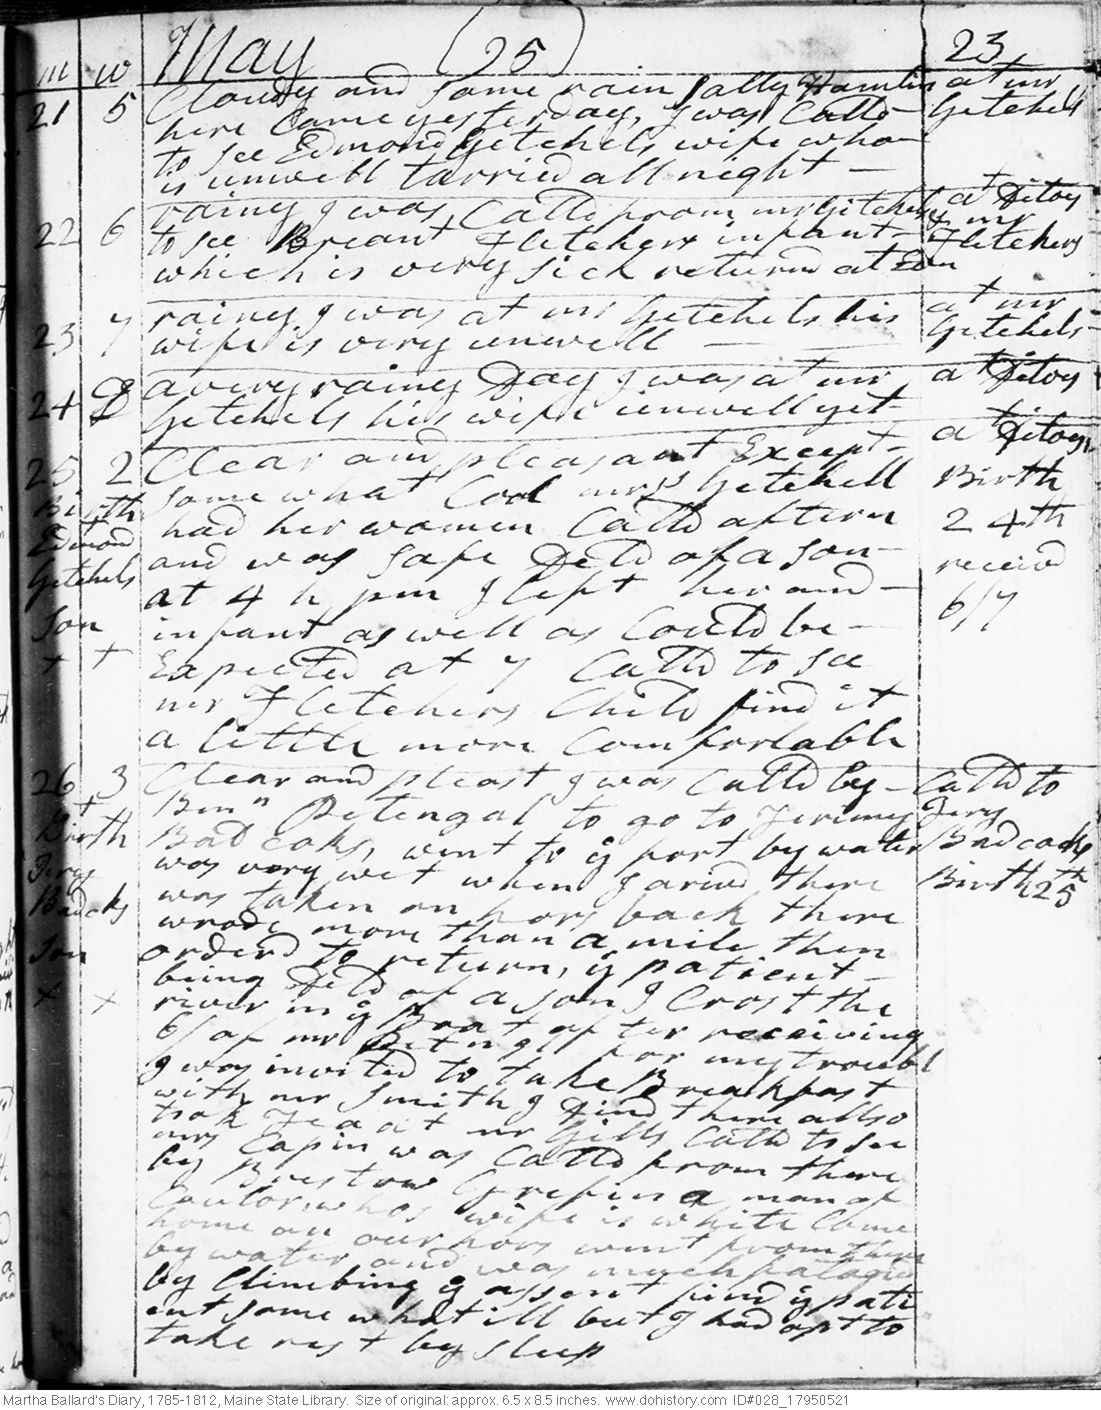 m w May (25) 23
21 5 Cloudy and some rain Sally Hamlin at mr
here Came yesterday, I was Calld Getchels
to see Edmond Getchels wife who
is unwell tarried all night —
22 6 rainy I was Calld from mr Getchels at Ditoes
to see Bryant Fletchers infant & mr
which is very sick returnd at Evn Fletchers
23 7 rainy I was at mr Getchels his at mr
wife is very unwell — — Getchels
24 a very rainy Day I was at mr at Ditoes
Getchels his wife unwell yet
25 2 Clear and pleasant Except at Ditoes
Birth somewhat Cool mrs Getchell Birth
Edmond had her women Calld aftern 24th
Getchels and was safe Deld of a son receivd
Son at 4 h pm I left her and 6/7
+ + infant as well as Could be
Expected at 7 Calld to see
mr Fletchers Child find it
a little more Comfortable
26 3 Clear and pleast I was Calld by Calld to
Birth Benn Petengal to go to Jeremy Jery
Jery Badcoks, went to ye fort by water Badcocks
Badcks was very wet when I arivd there Birth 25th
Son was taken on hors back there
x x wrode more than a mile then
orderd to return, ye patient
being Deld of a son I Crost the
river in ye Boat after receiving
6/ of mr for my troubl
I was invited to take Breakfast
with mr Smith I Dind there allso
took Tea at mr Gills Calld to see
mrs Capin was Calld from there
by Brestow Grefin a man of
Coulor, whos wife is white Came
home on our hors went from there
by water and was much fatagud
by Climbing ye assent find ye pati
ent some what ill but I had opt to
take rest by sleep
Martha Ballard's Diary, 1785-1812, Maine State Library. Size of original: approx. 6.5 x 8.5 inches. www.dohistory.com ID#028_17950521